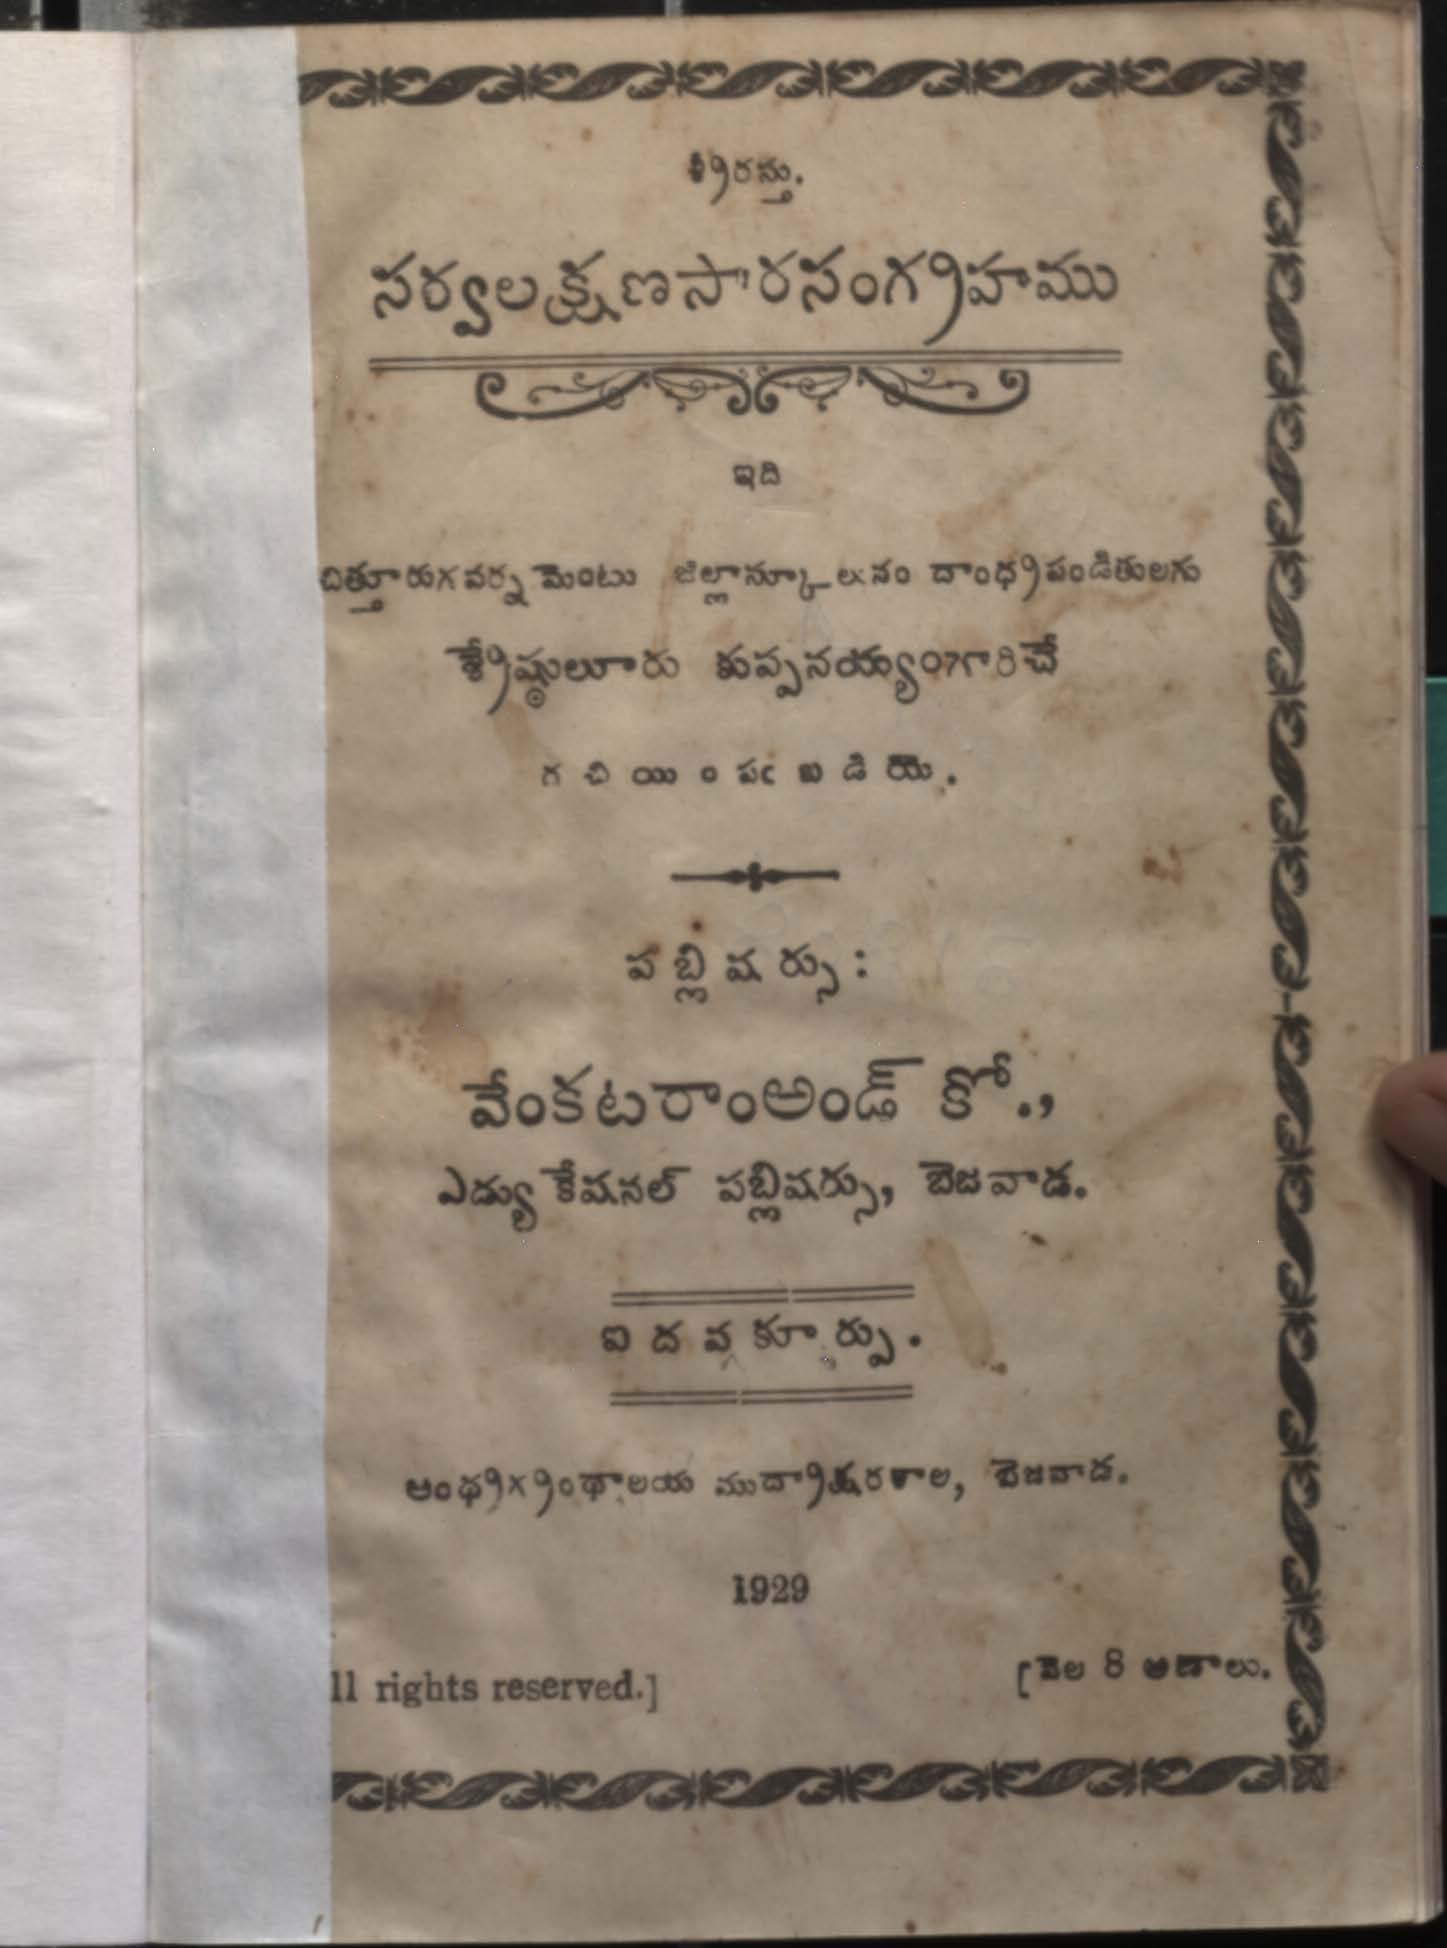 శ్రీరస్తు.
సర్వలక్షణసారసంగ్రహము
ఇది
చిత్తూరుగవర్నమెంటు జిల్లాస్కూలునం దాంధ్రపండితులగు
శ్రేష్ఠులూరు కుప్పనయ్యంగారిచే
రచియింపఁబడియె.
పబ్లిషర్సు:
వేంకటరాంఅండ్ కో.,
ఎడ్యుకేషనల్ పబ్లిషర్సు, బెజవాడ.
ఐదవకూర్పు.
ఆంధ్రగ్రంథాలయ ముద్రాక్షరశాల, బెజవాడ.
1929
ll rights reserved.]
[వెల 8 అణాలు.